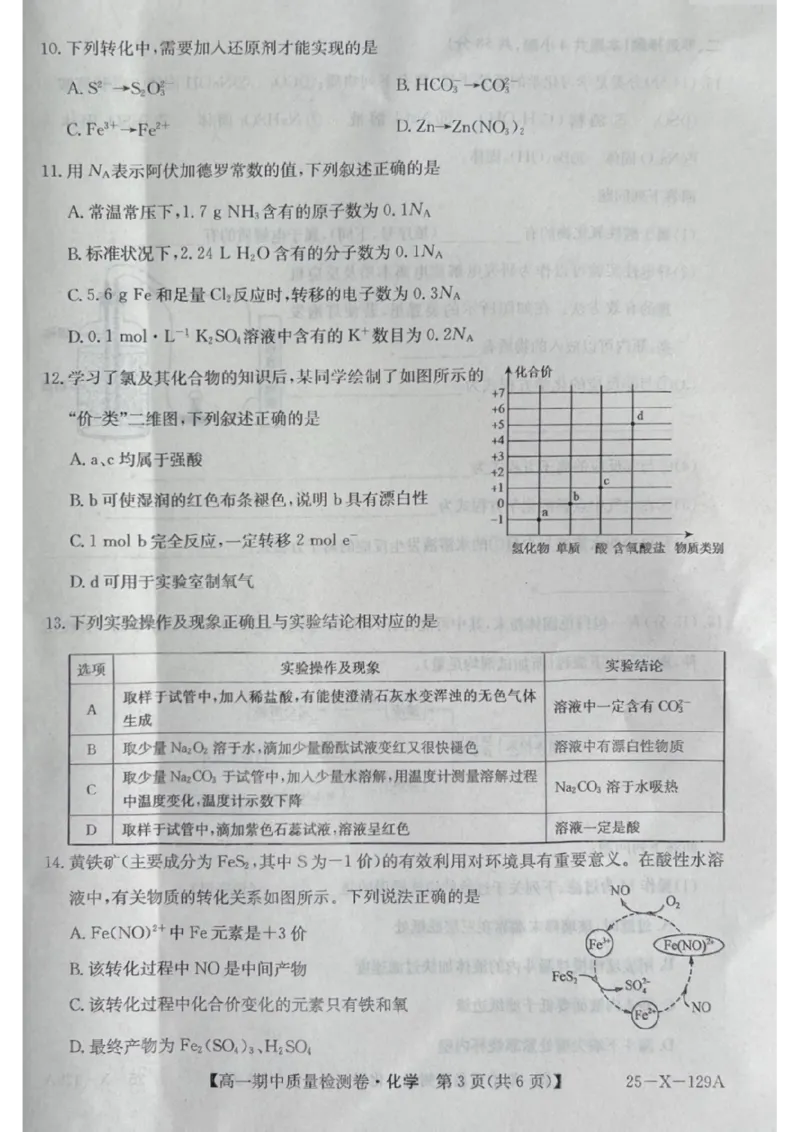 10. 下列转化中,需要加入还原剂才能实现的是
A. S²⁻→S₂O₃²⁻
B. HCO₃⁻→CO₃²⁻
C. Fe³⁺→Fe²⁺
D. Zn→Zn(NO₃)₂
11. 用 Nᴀ表示阿伏加德罗常数的值,下列叙述正确的是
A. 常温常压下,1.7 g NH₃含有的原子数为 0.1Nᴀ
B. 标准状况下,2.24 L H₂O 含有的分子数为 0.1Nᴀ
C. 5.6 g Fe 和足量 Cl₂反应时,转移的电子数为 0.3Nᴀ
D. 0.1 mol·L⁻¹ K₂SO₄溶液中含有的 K⁺数目为 0.2Nᴀ
12. 学习了氯及其化合物的知识后,某同学绘制了如图所示的
“价-类”二维图,下列叙述正确的是
A. a、c 均属于强酸
B. b 可使湿润的红色布条褪色,说明 b 具有漂白性
C. 1 mol b 完全反应,一定转移 2 mol e⁻
D. d 可用于实验室制氧气
化合价
+7
+6
+5
+4
+3
+2
+1
0
-1
a
b
c
d
氢化物 单质 酸 含氧酸盐 物质类别
13. 下列实验操作及现象正确且与实验结论相对应的是
选项 实验操作及现象 实验结论
A 取样于试管中,加入稀盐酸,有能使澄清石灰水变浑浊的无色气体
生成 溶液中一定含有 CO₃²⁻
B 取少量 Na₂O₂ 溶于水,滴加少量酚酞试液变红又很快褪色 溶液中有漂白性物质
C 取少量 Na₂CO₃ 于试管中,加入少量水溶解,用温度计测量溶解过程
中温度变化,温度计示数下降 Na₂CO₃ 溶于水吸热
D 取样于试管中,滴加紫色石蕊试液,溶液呈红色 溶液一定是酸
14. 黄铁矿(主要成分为 FeS₂,其中 S 为-1 价)的有效利用对环境具有重要意义。在酸性水溶
液中,有关物质的转化关系如图所示。下列说法正确的是
A. Fe(NO)²⁺中 Fe 元素是+3 价
B. 该转化过程中 NO 是中间产物
C. 该转化过程中化合价变化的元素只有铁和氧
D. 最终产物为 Fe₂(SO₄)₃、H₂SO₄
NO
O₂
Fe³⁺
Fe(NO)²⁺
FeS₂
SO₄²⁻
Fe²⁺
NO
【高一期中质量检测卷·化学 第 3 页(共 6 页)】 25-X-129A